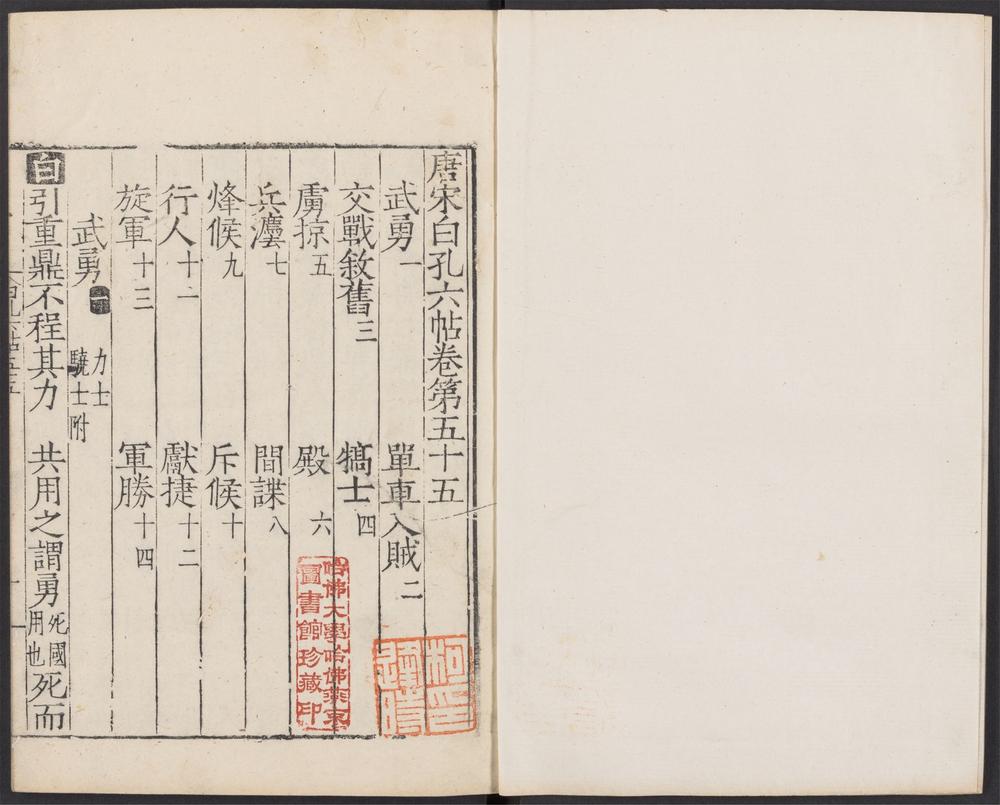 唐宋白孔六帖卷第五十五
武勇一 單車入賊二
交戰敘舊三 犒士四
虜掠五 殿六
兵灋七 間諜八
烽候九 斥候十
行人十一 獻捷十二
旋軍十三 軍勝十四
武勇一 力士驍士附
白 引重鼎不程其力 共用之謂勇死國用也死而
哈佛大學哈佛燕京
圖書館珍藏印